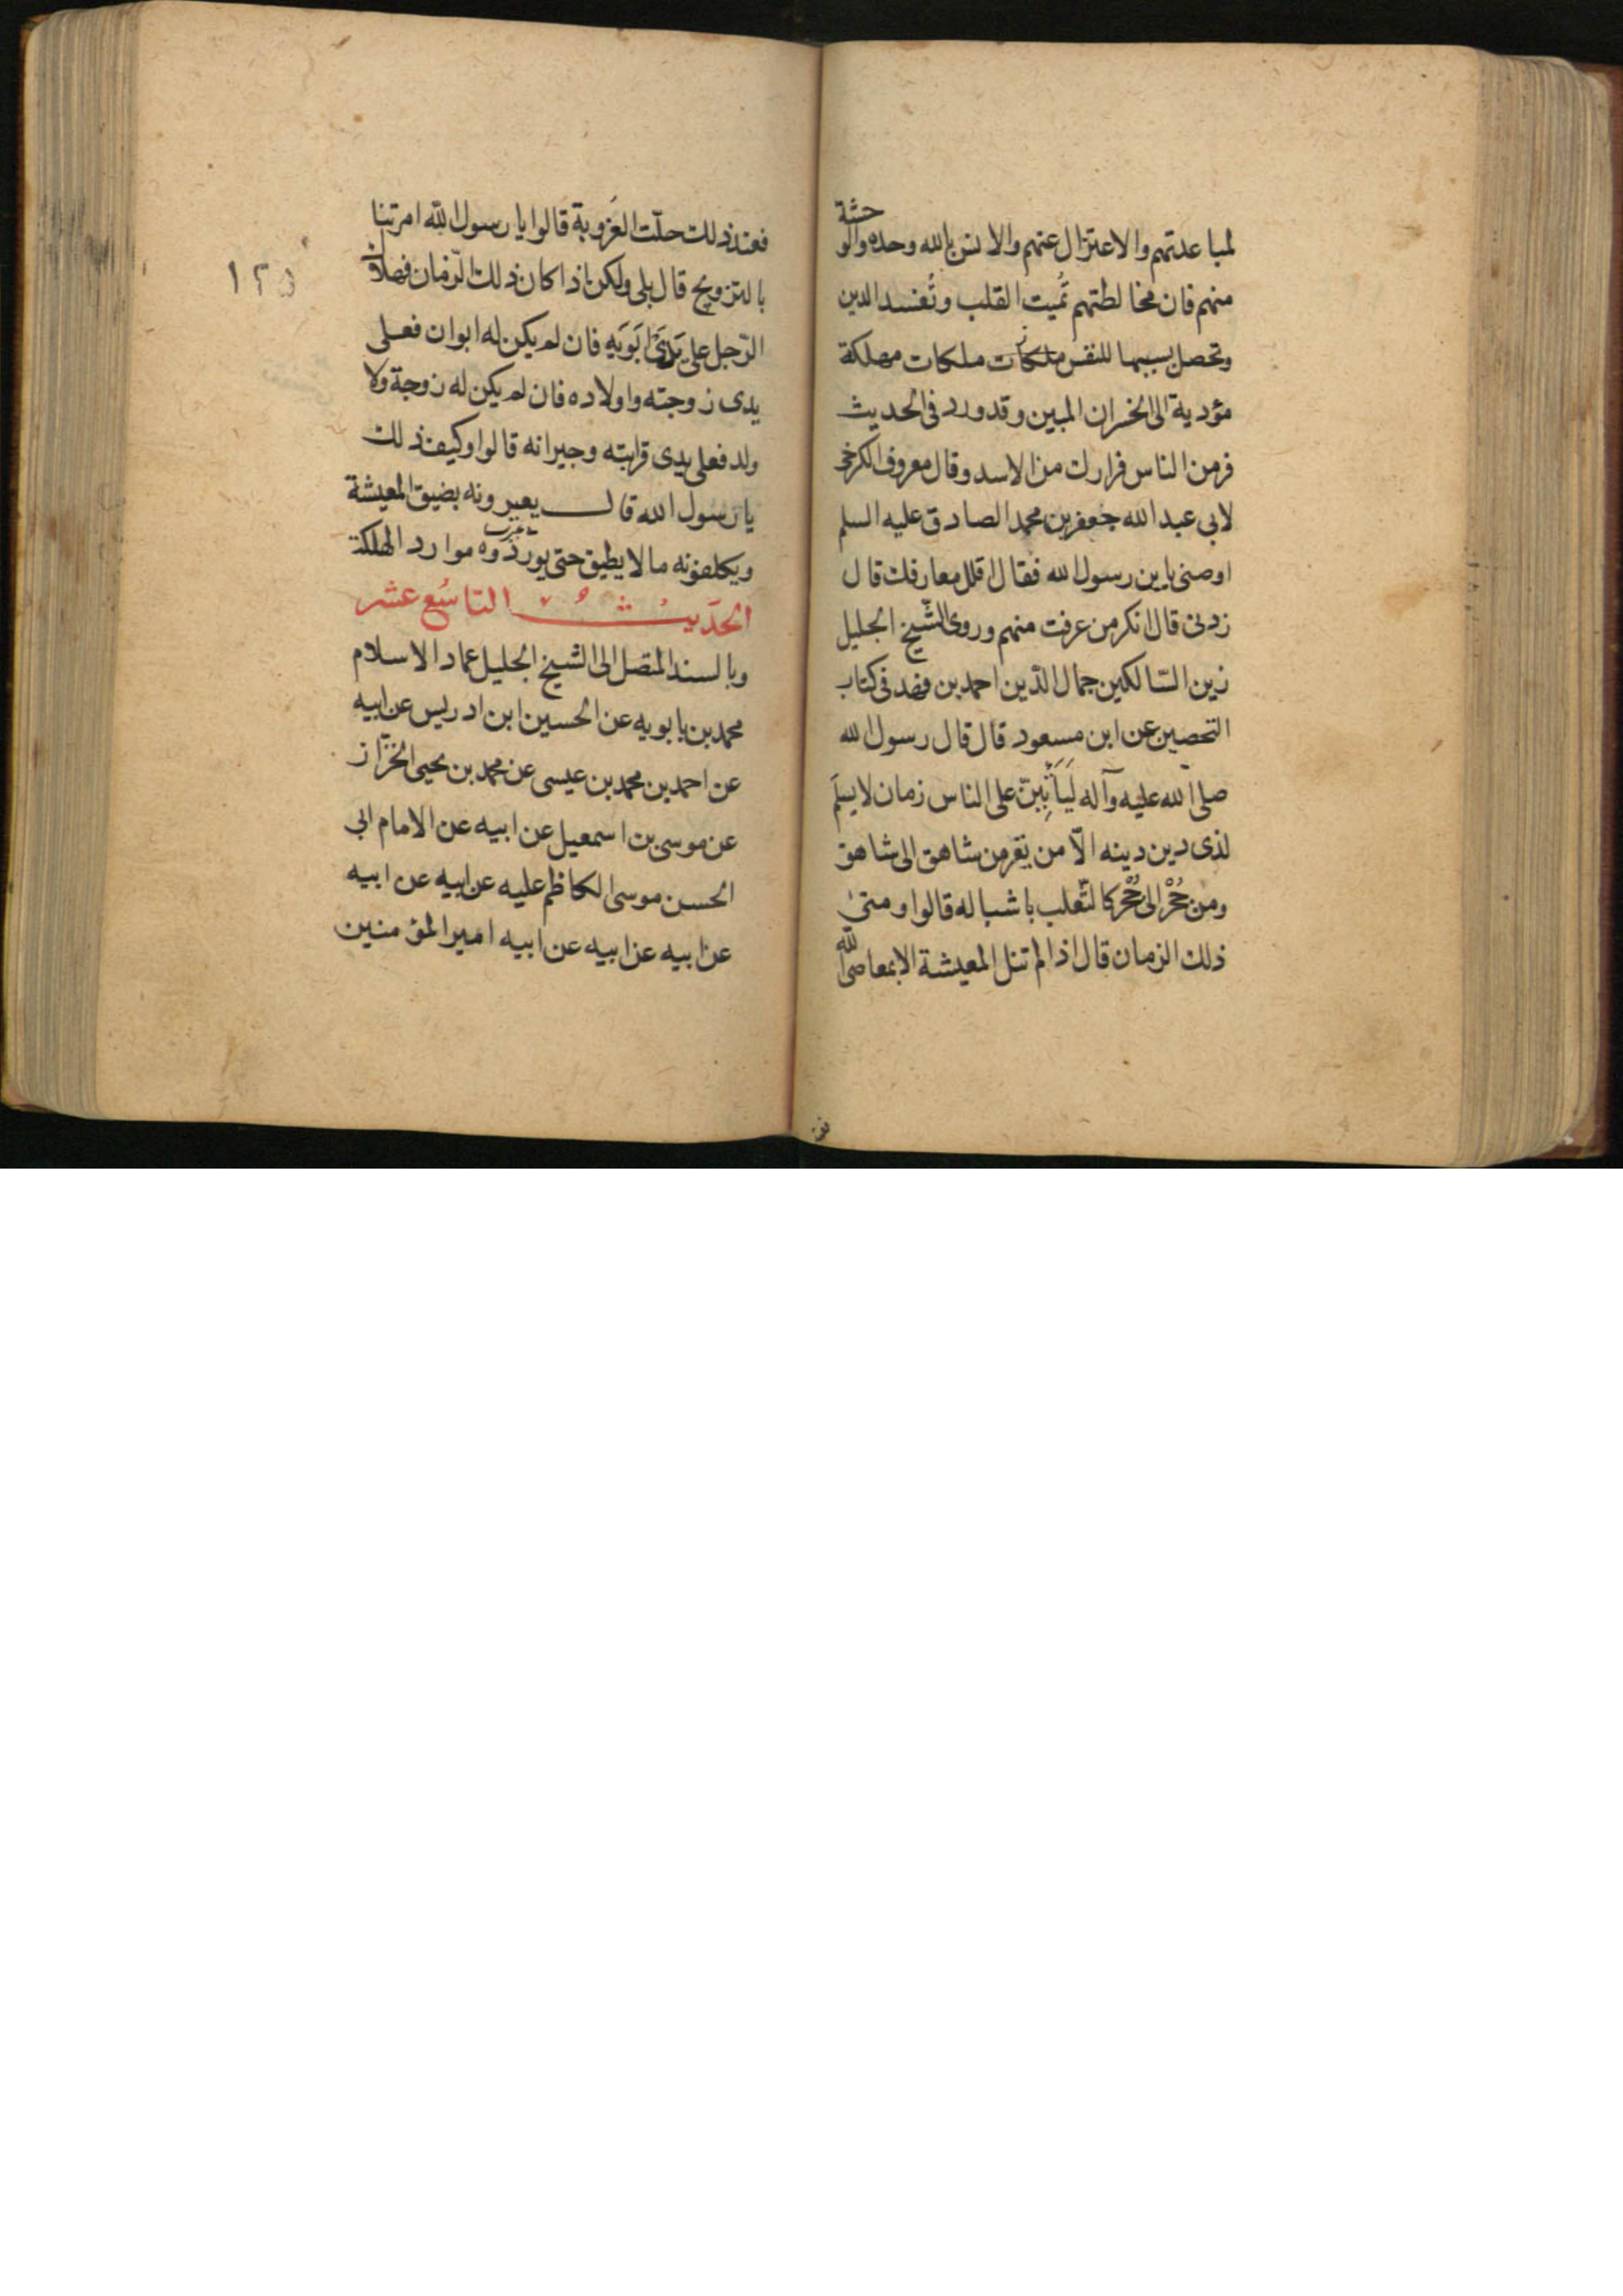 لمباعدتهم والاعتزال عنهم والانس بالله وحده والوحشة
منهم فان مخالطتهم تُميت القلب وتُفسد الدين
وتحصل بسببها للنفس ملكات مهلكة
مؤدية الى الخسران المبين وقد ورد فى الحديث
فر من الناس فرارك من الاسد وقال معروف الكرخى
لابى عبد الله جعفر بن محمد الصادق عليه السلم
اوصنى يا بن رسول الله فقال اقلل معارفك قال
زدنى قال انكر من عرفت منهم وروى الشّيخ الجليل
زين السّالكين جمال الدّين احمد بن فهد فى كتاب
التحصين عن ابن مسعود قال قال رسول الله
صلى الله عليه وآله لَيَأتِيَنّ على الناس زمان لا يسلَم
لذى دين دينه الاّ من يفر من شاهق الى شاهق
ومن حُجْر الى حُجْر كالثّعلب باشباله قالوا ومتىٰ
ذلك الزمان قال اذا لم تنل المعيشة الا بمعاصى الله
١٢٥
فعند ذلك حلّت العُزوبة قالوا يا رسول الله امرتنا
بالتزويج قال بلى ولكن اذا كان ذلك الزمان فهلاك
الرّجل على يَدَىْ ابَوَيَهِ فان لم يكن له ابوان فعلى
يدى زوجته واولاده فان لم يكن له زوجة ولا
ولد فعلى يدى قرابته وجيرانه قالوا وكيف ذلك
يا رسول الله قال يعيرونه بضيق المعيشة
ويكلفونه ما لا يطيق حتى يوردوه موارد الهلكة
الحَديثُ التاسُع عشر
وبالسند المتصل الى الشيخ الجليل عماد الاسلام
محمد بن بابويه عن الحسين ابن ادريس عن ابيه
عن احمد بن محمد بن عيسى عن محمد بن يحيى الخزّاز
عن موسى بن اسمعيل عن ابيه عن الامام ابى
الحسن موسى الكاظم عليه عن ابيه عن ابيه
عن ابيه عن ابيه عن ابيه امير المؤمنين